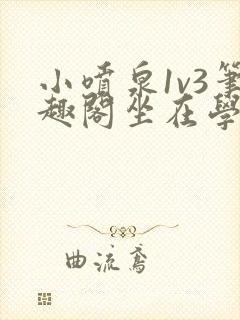 小噴泉1v3筆
趣閣坐在學
曲流鳶